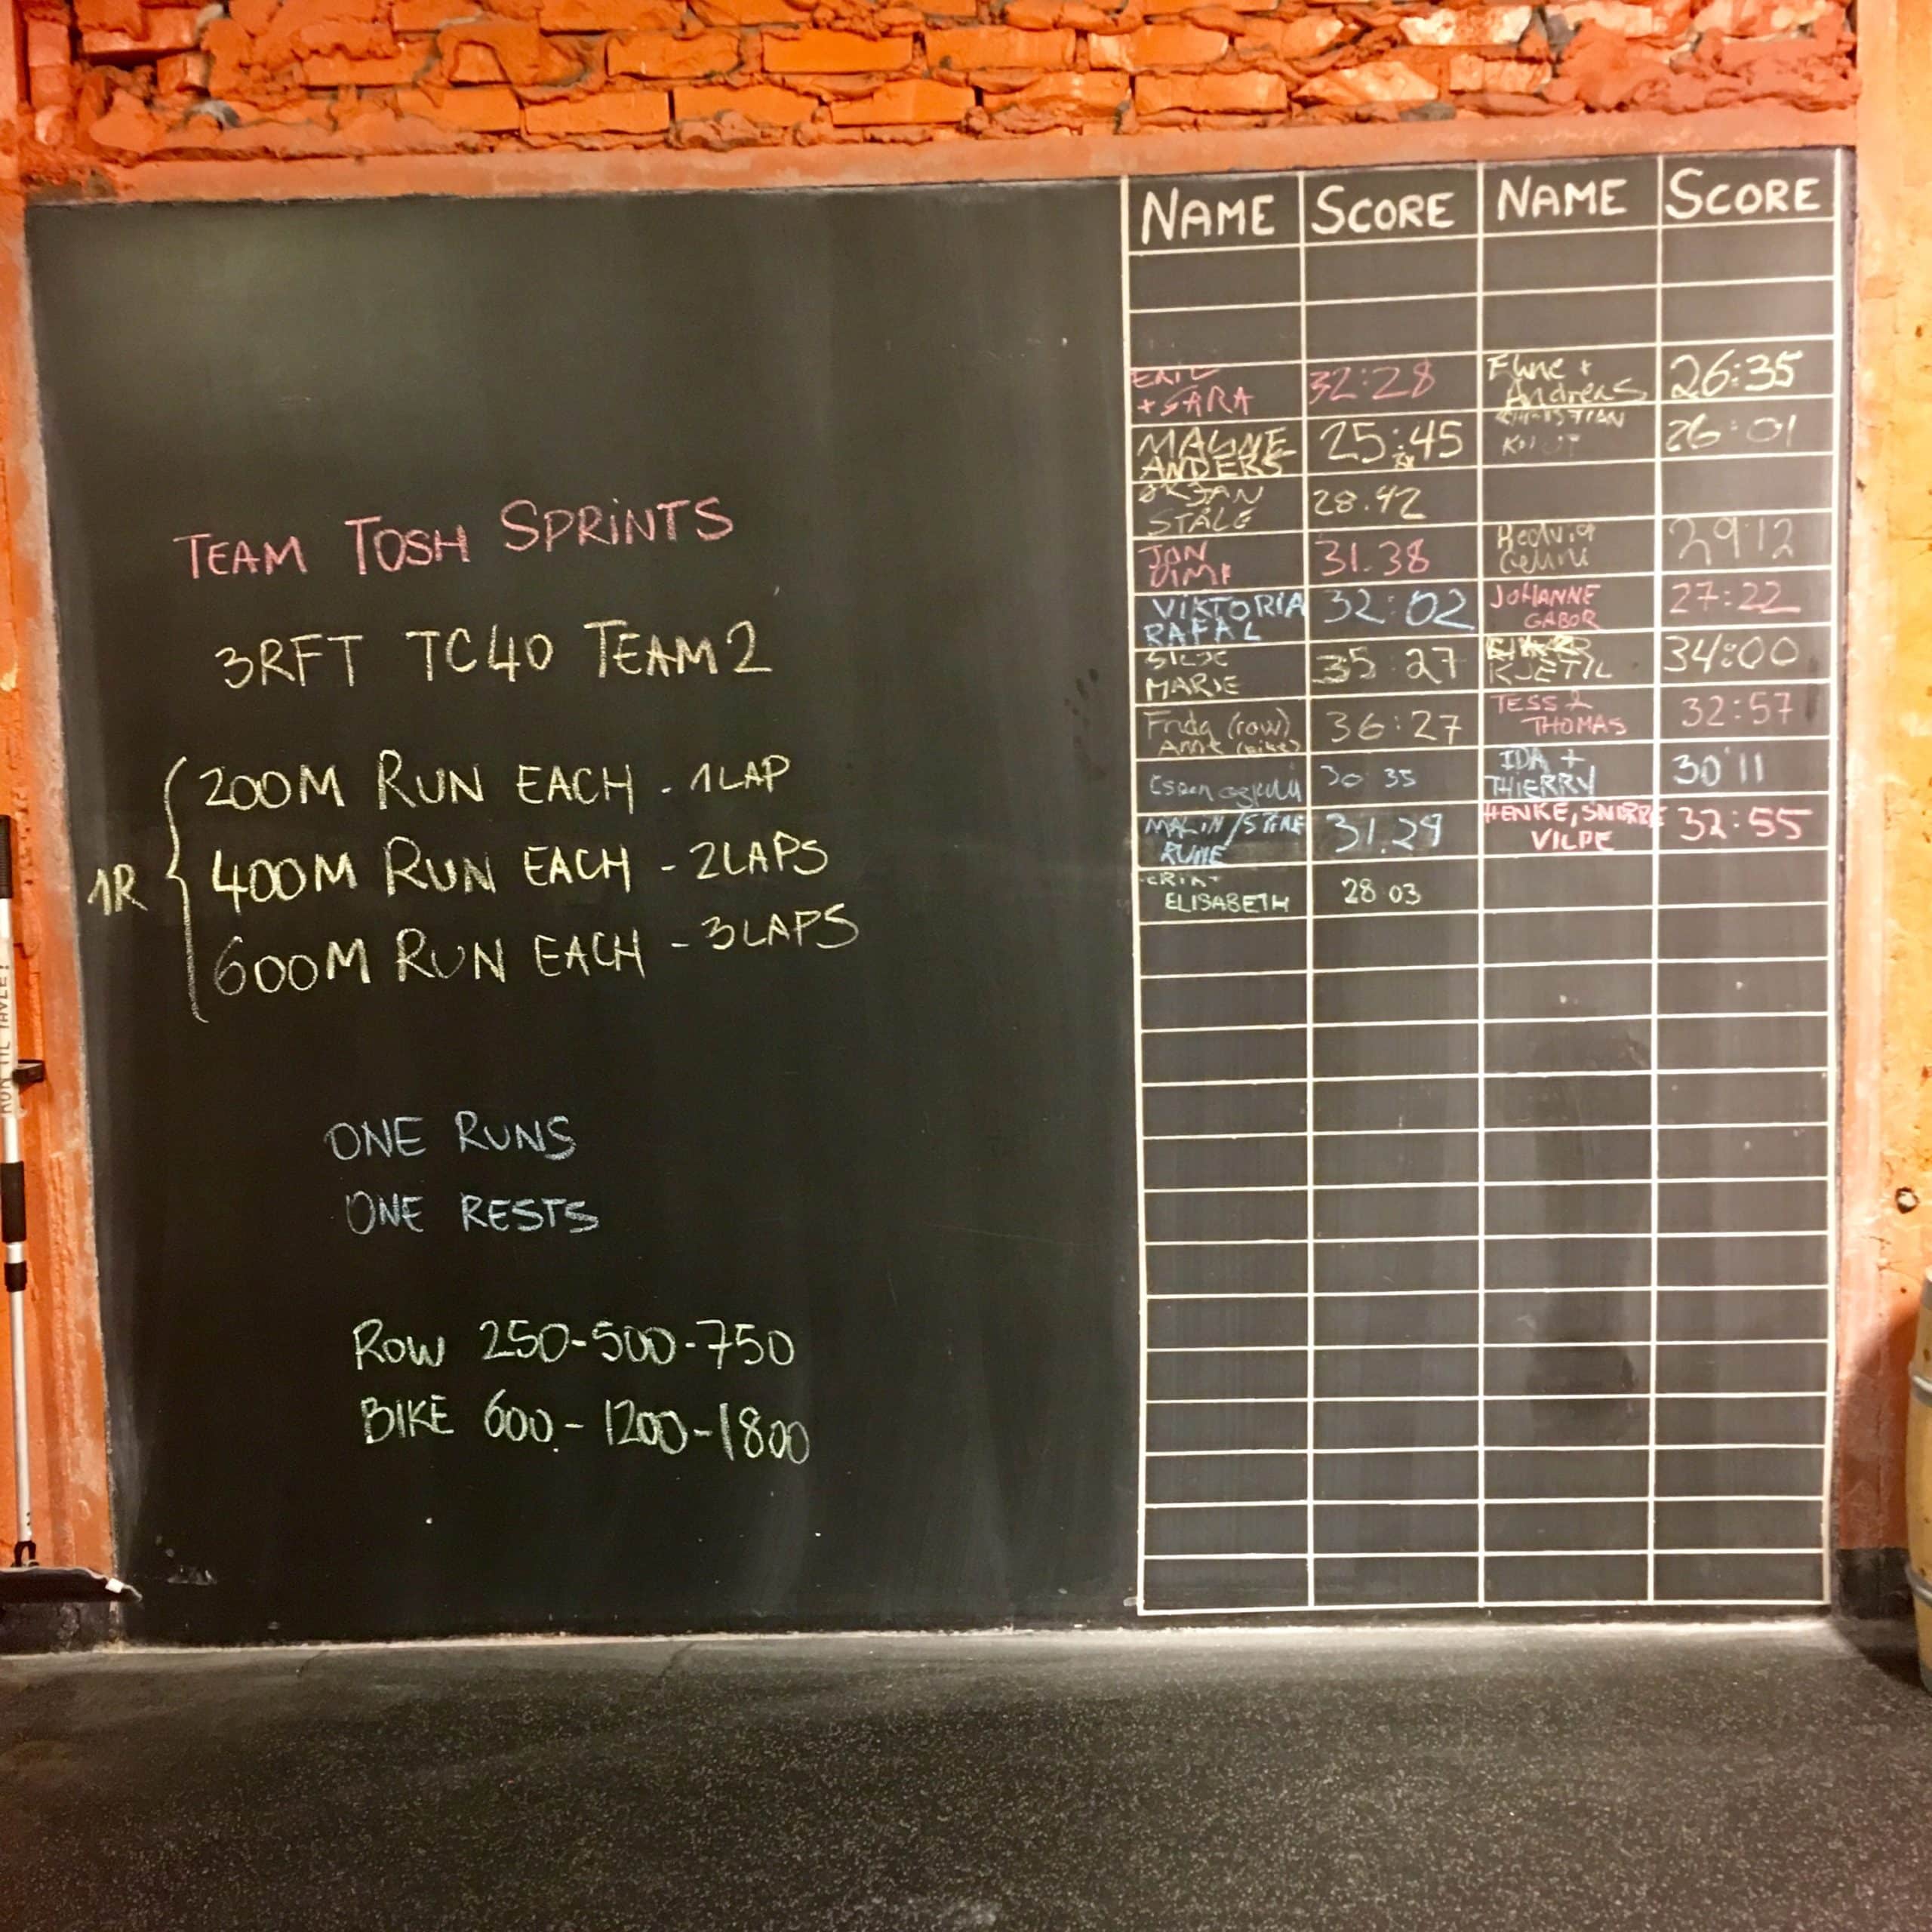 TEAM TOSH SPRINTS
3RFT TC40 TEAM 2
1R
200M RUN EACH - 1LAP
400M RUN EACH - 2LAPS
600M RUN EACH - 3LAPS
ONE RUNS
ONE RESTS
ROW 250-500-750
BIKE 600-1200-1800
NAME SCORE NAME SCORE
+ SARA 32:28
Andreas 26:35
MAGNE
ANDERS 25:45
26:01
STÅLE 28.42
JON 31.38
Hedvig
29:12
VIKTORIA
RAFAL 32:02
JOHANNE
GABOR 27:22
SILJE
MARIE 35:27
KJETIL 34:00
Frida (row)
(bike) 36:27
TESS &
THOMAS 32:57
Espen 30 35
IDA +
THIERRY 30'11
MALIN/STINE
RUNE 31.29
HENKE, SNORRE
32:55
ELISABETH 28 03